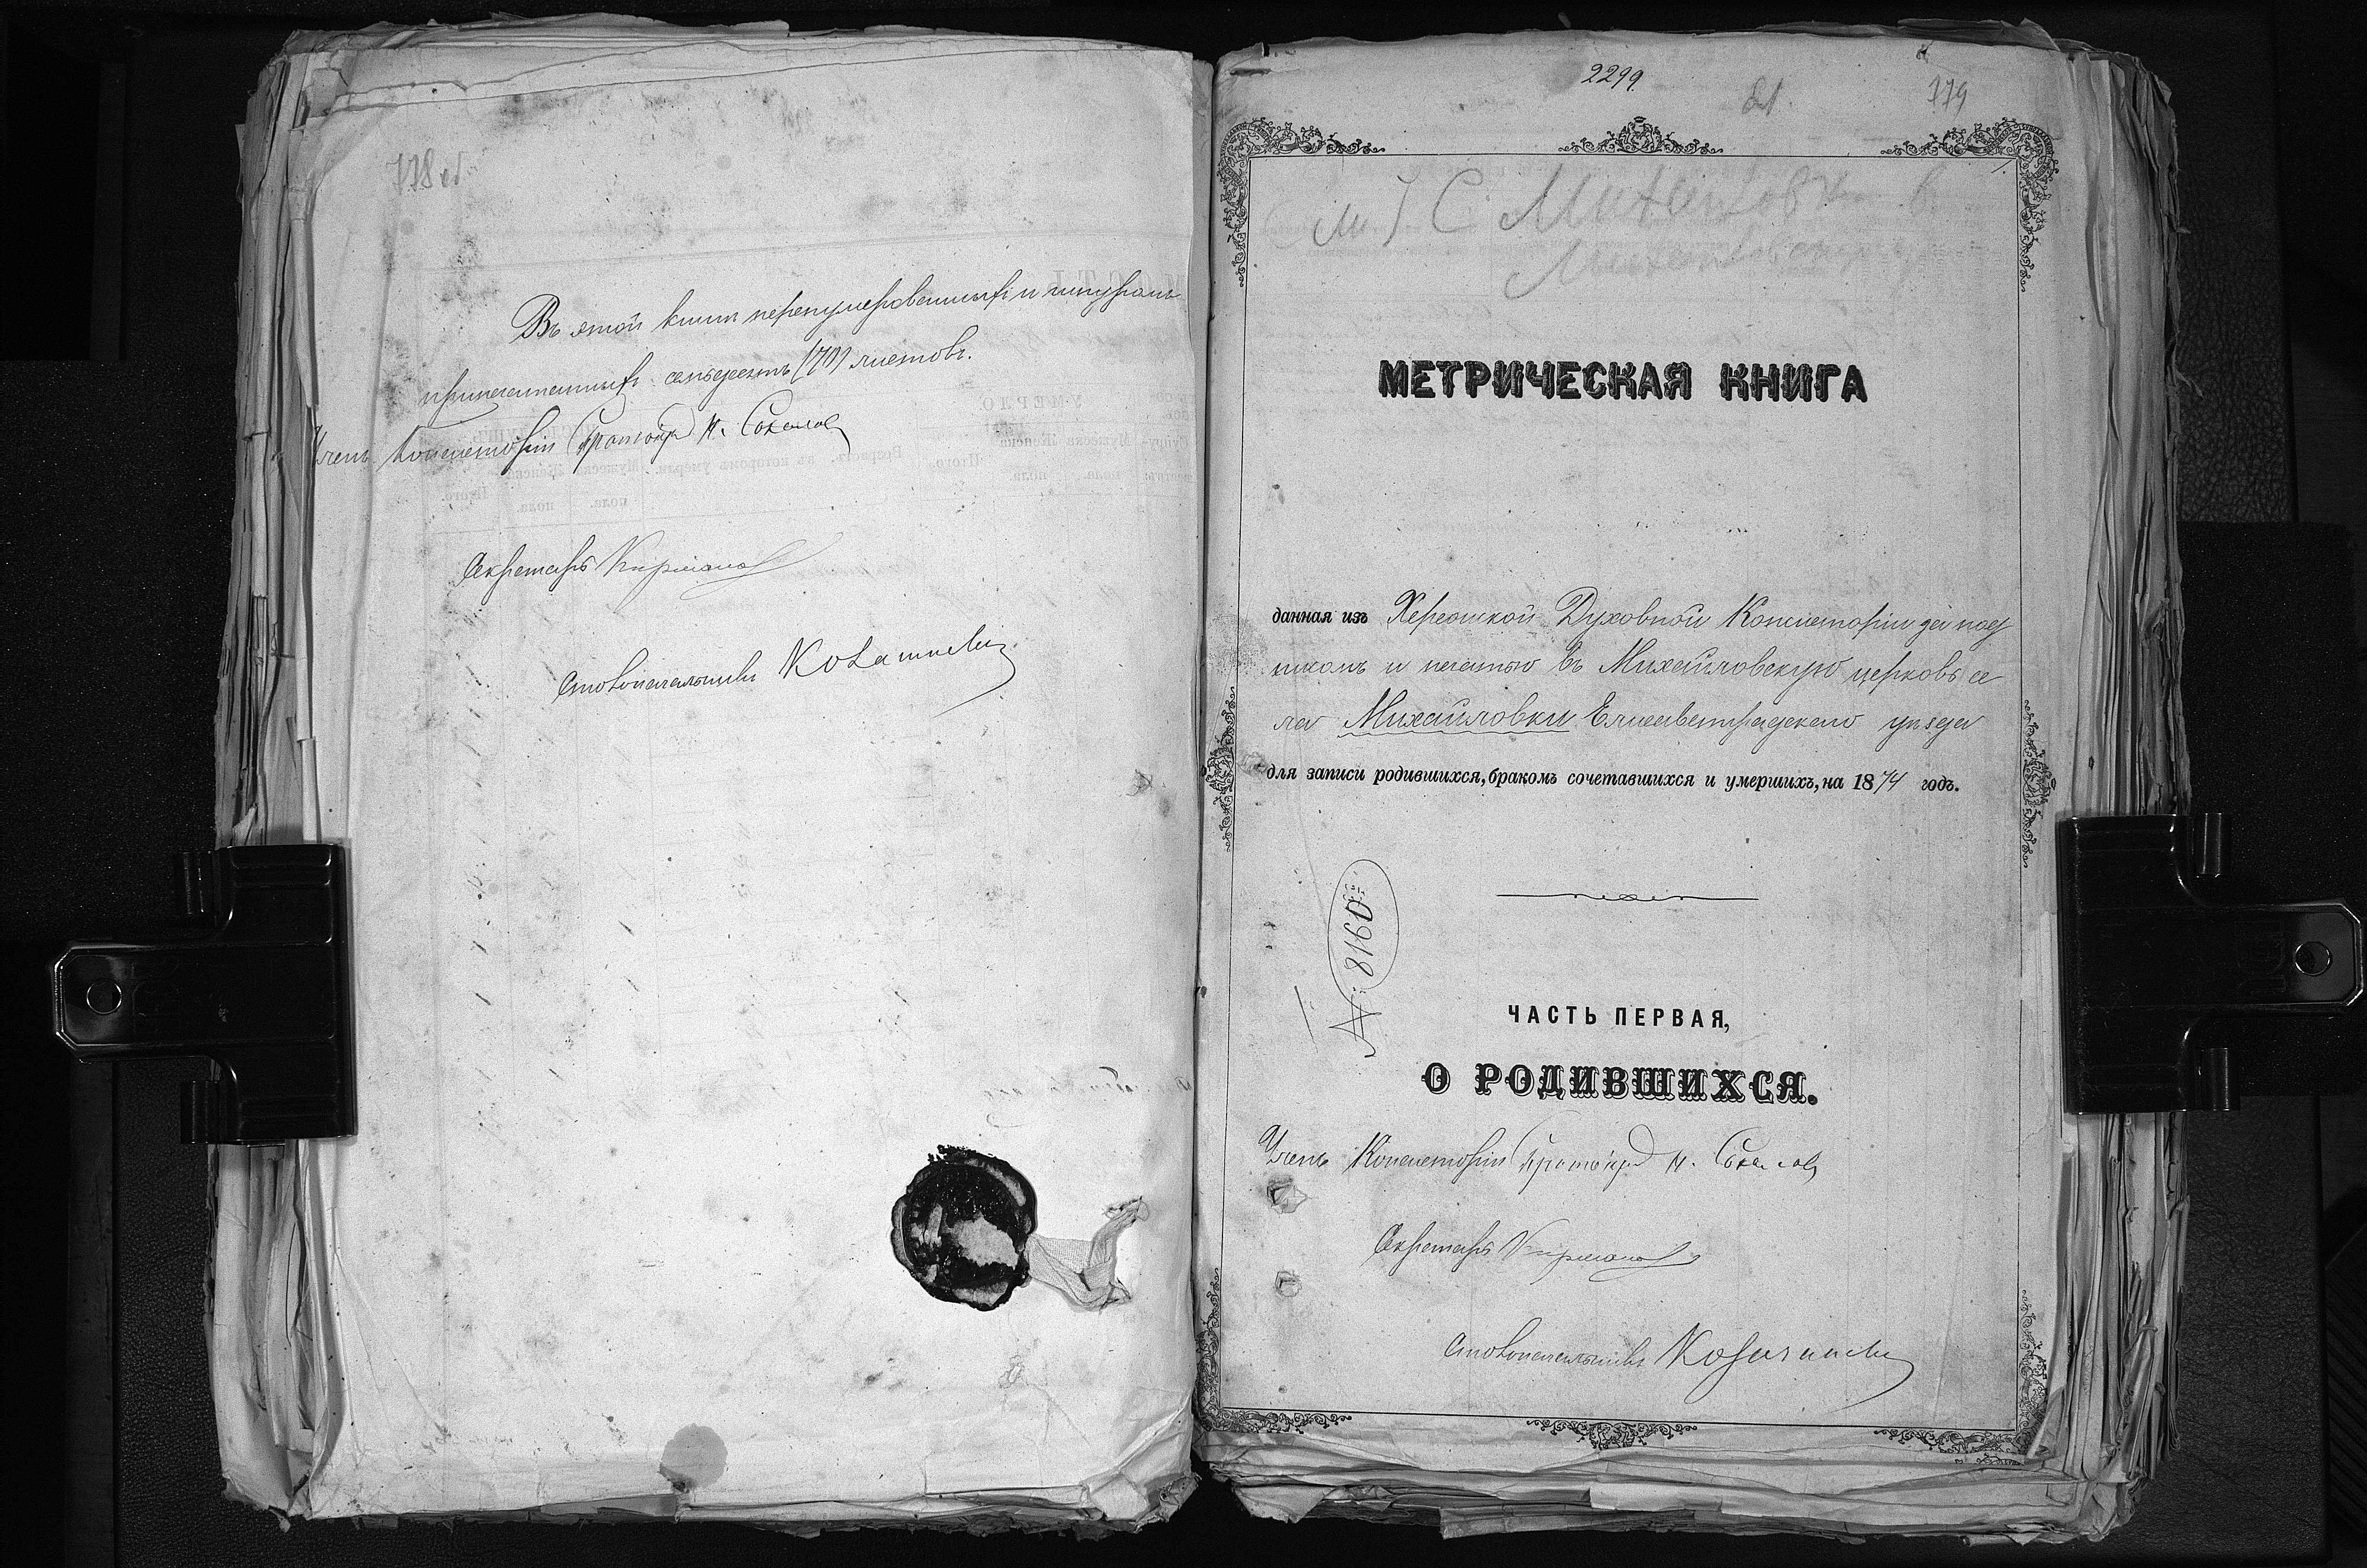 778 об
Въ этой книгѣ перенумерованныхъ и шнуромъ
припечатанныхъ семьдесятъ (70) листовъ.
Членъ Консисторіи Н. Соколовъ
Секретарь
Столоначальникъ
2299
81.
779
С Михайловка
МЕТРИЧЕСКАЯ КНИГА
данная изъ Херсонской Духовной Консисторіи за под
писомъ и печатью въ Михайловскую церковь се
ла Михайловки Елисаветградскаго уѣзда
для записи родившихся, бракомъ сочетавшихся и умершихъ, на 1874 годъ.
№ 8160
ЧАСТЬ ПЕРВАЯ,
О РОДИВШИХСЯ.
Членъ Консисторіи Н. Соколовъ
Секретарь
Столоначальникъ